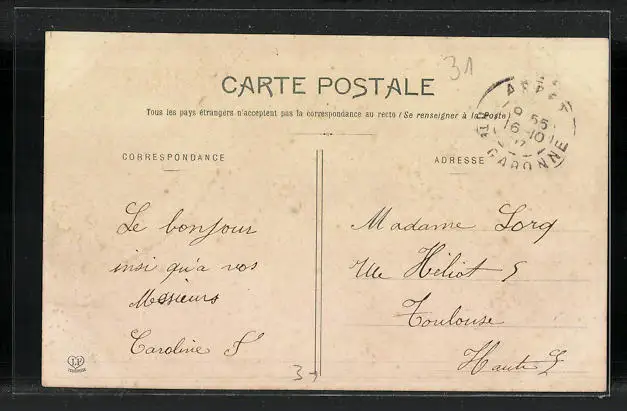 31
CARTE POSTALE
Tous les pays étrangers n'acceptent pas la correspondance au recto (Se renseigner à la Poste)
CORRESPONDANCE
ADRESSE
ASPET
9 55
16 - 10
GARONNE
Le bonjour
insi qu'a vos
Messieurs
Caroline S
Madame Lorg
Rue Héliot 5
Toulouse
Haute G
31